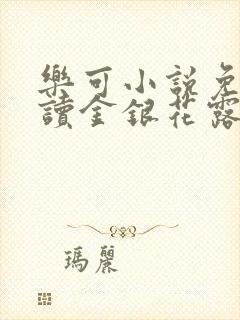 樂可小說免
讀金銀花露
瑪麗